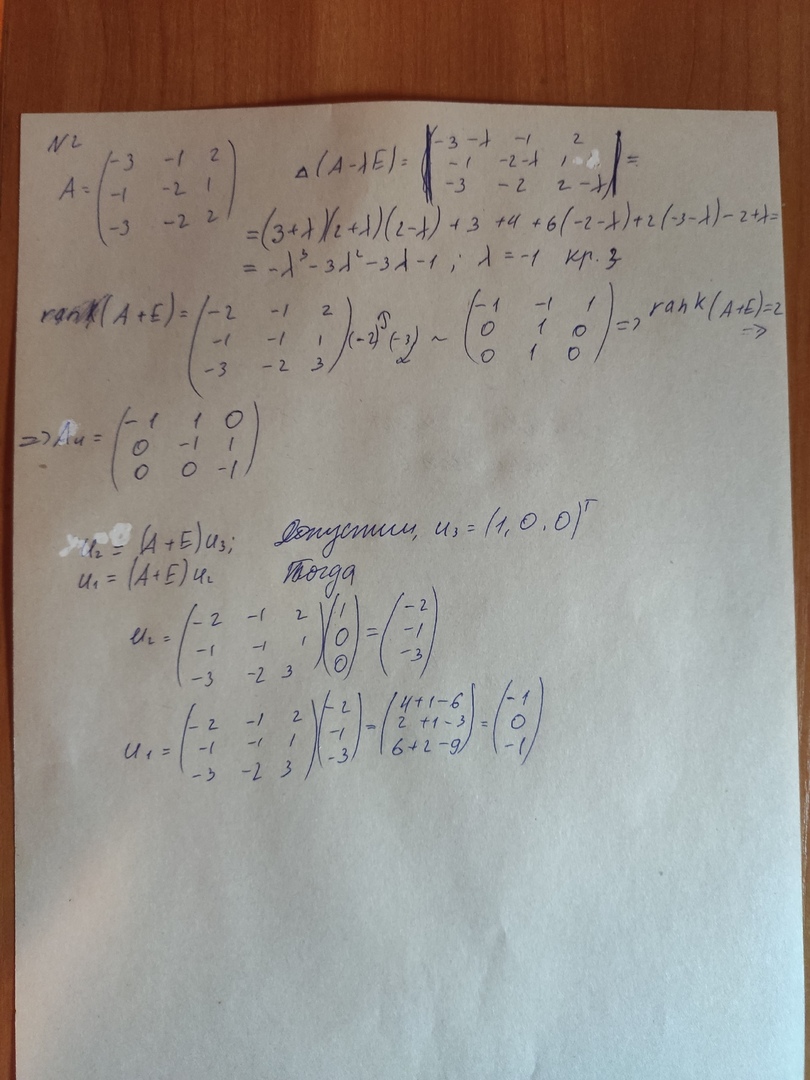 N2
A = (-3 -1 2
-1 -2 1
-3 -2 2)
Δ(A-λE) = |-3-λ -1 2
-1 -2-λ 1
-3 -2 2-λ| =
=(3+λ)(2+λ)(2-λ) + 3 +4 +6(-2-λ)+2(-3-λ)-2+λ=
= -λ³-3λ²-3λ-1 ; λ=-1 кр. 3
rank(A+E) = (-2 -1 2
-1 -1 1
-3 -2 3) (-2) (-3) ~ (-1 -1 1
0 1 0
0 1 0) => rank(A+E)=2
=>
=> A = (-1 1 0
0 -1 1
0 0 -1)
u₂ = (A+E)u₃; Допустим, u₃ = (1, 0, 0)ᵀ
u₁ = (A+E)u₂ Тогда
u₂ = (-2 -1 2
-1 -1 1
-3 -2 3)(1
0
0) = (-2
-1
-3)
u₁ = (-2 -1 2
-1 -1 1
-3 -2 3)(-2
-1
-3) = (4+1-6
2+1-3
6+2-9) = (-1
0
-1)